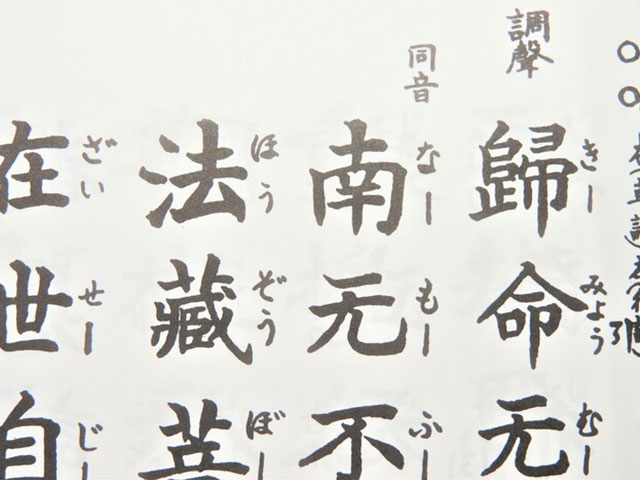 調聲
歸命无
きーみょうむー
同音
南无不
なーもーふー
法藏菩
ほうぞうぼー
在世自
ざいせーじー